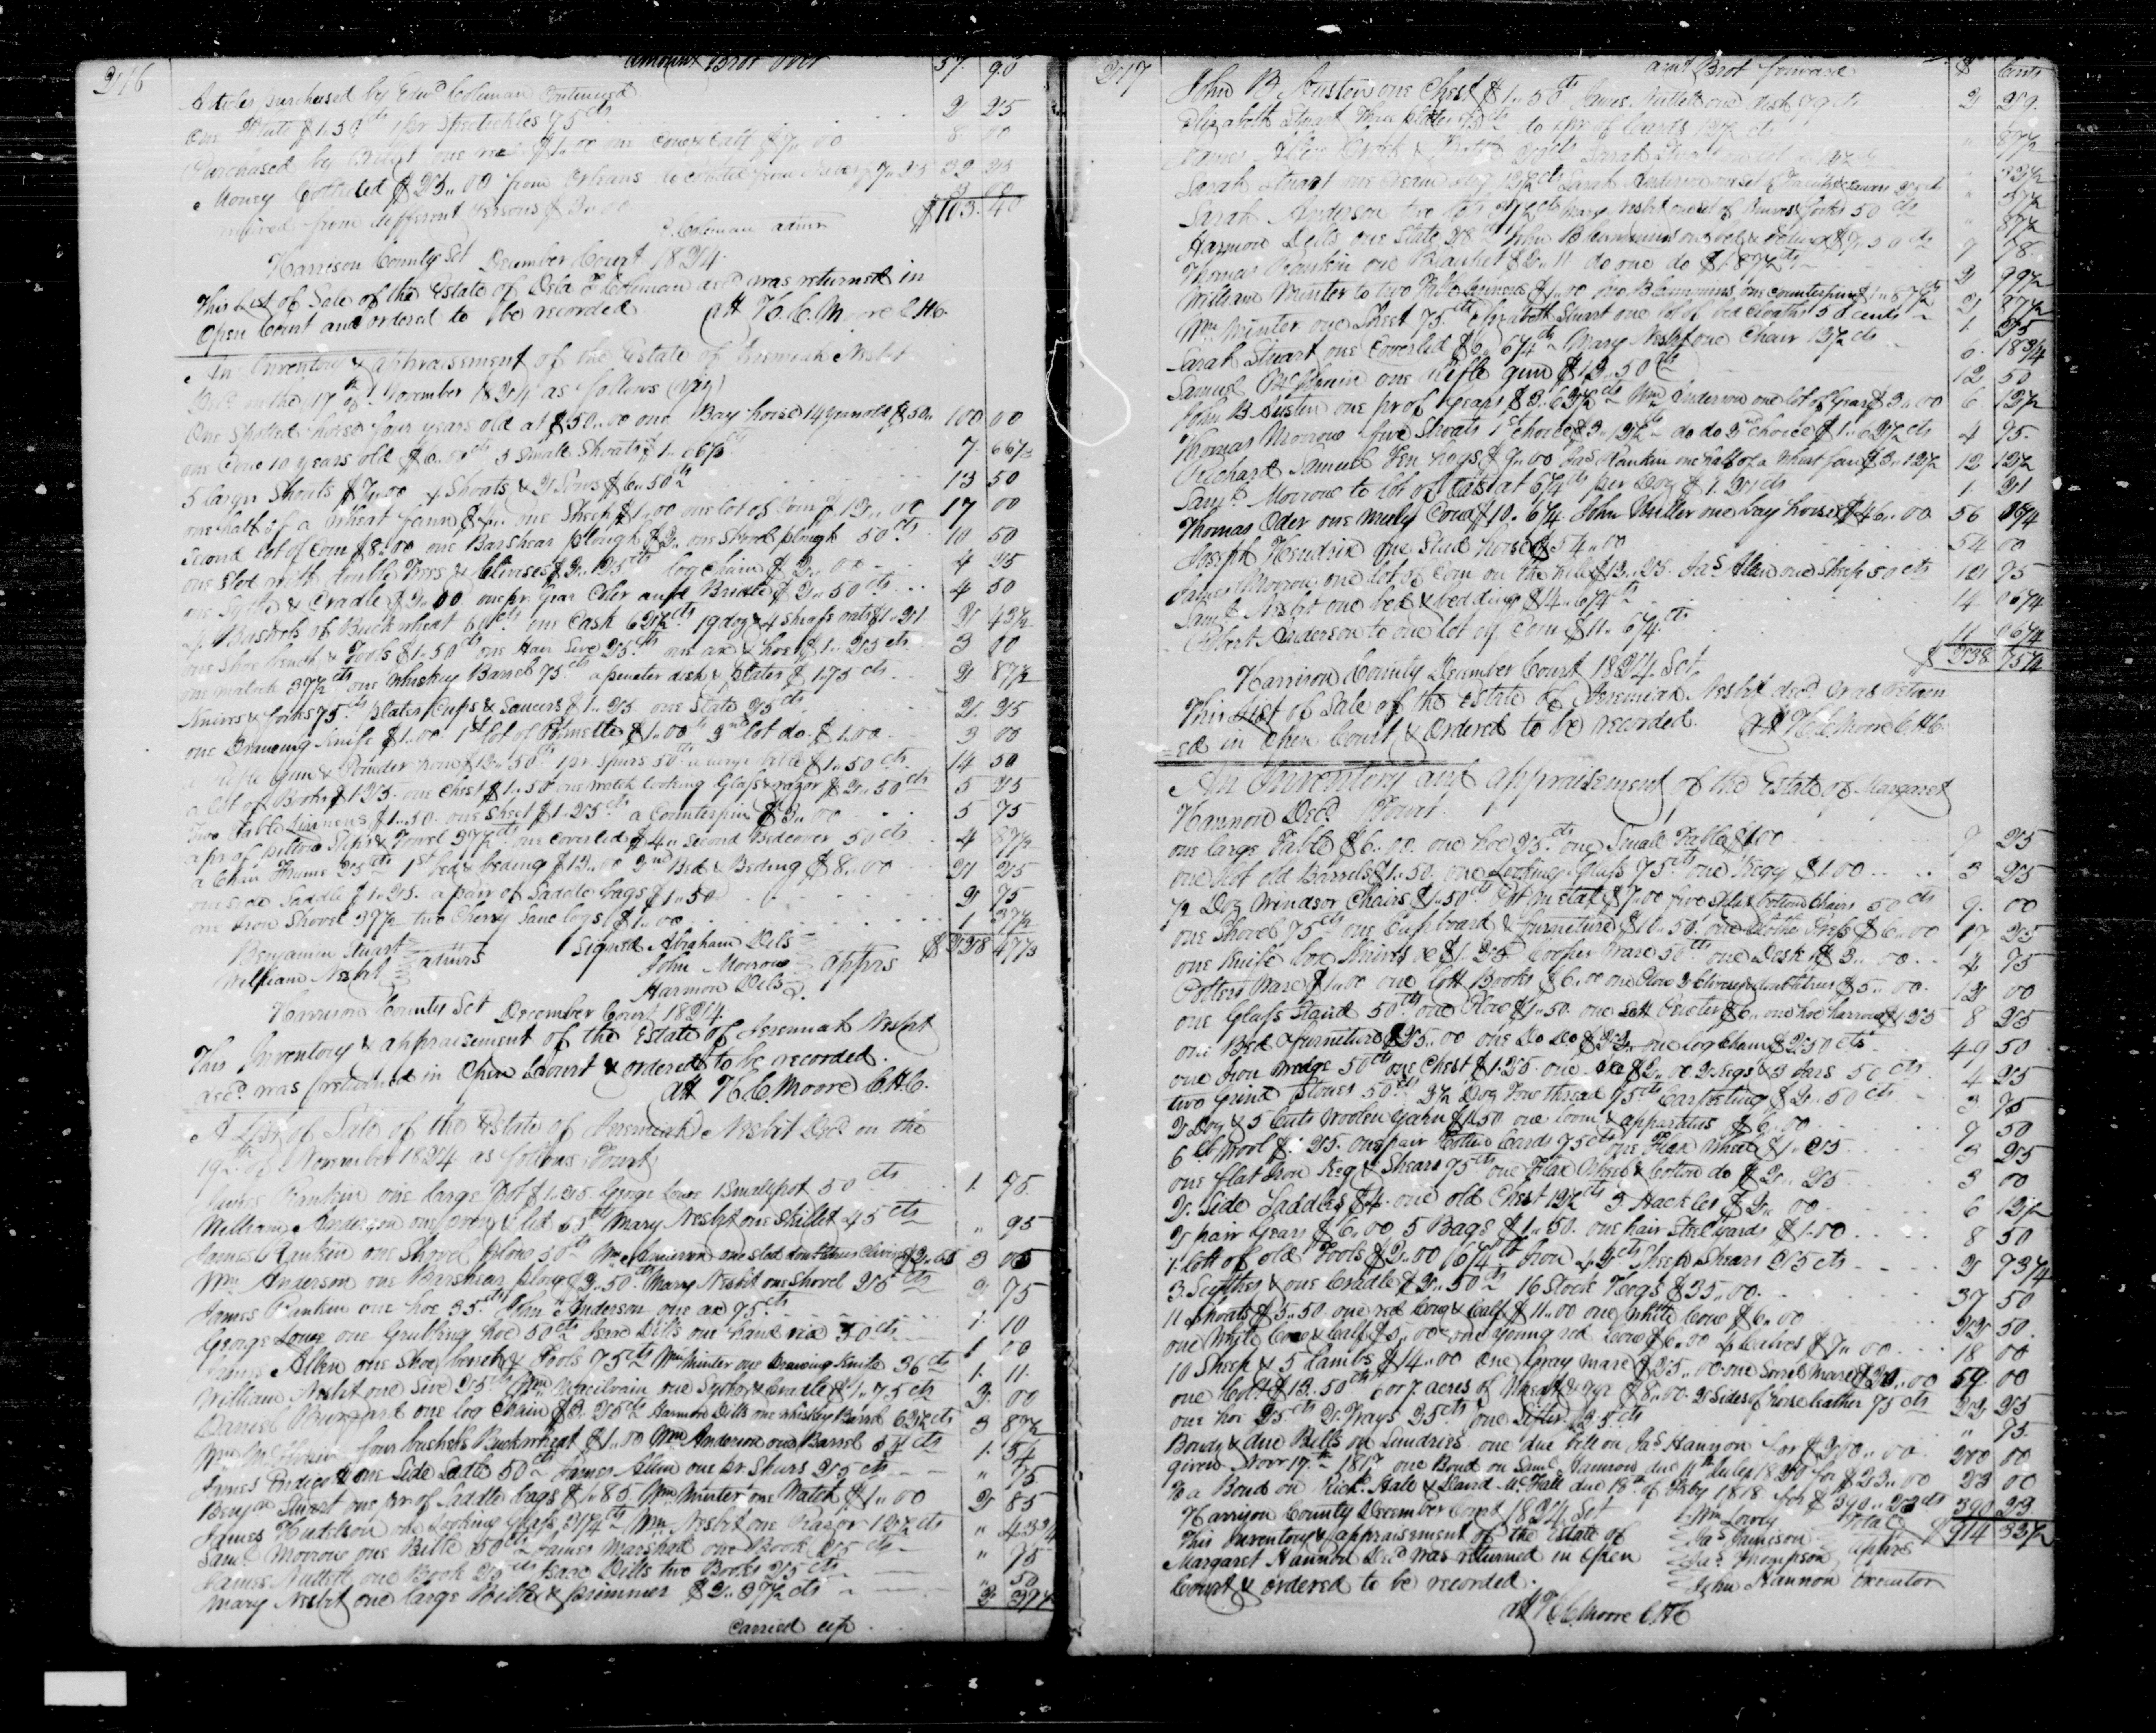 216
Amount Brot over 57. 90
Articles purchased by Edwd Coleman Continued
One $1.50cts 1 pr Spectickles 75cts 2 25
Purchased by one $1..00 one Cow & Calf $7..00 8 00
Money Collected $25..00 from Orleans do Collected from 7..25 32 25
from different persons $3..00
Coleman admr $103.40
Harrison County Sct December Court 1824.
This List of Sale of the Estate of Coleman decd was returned in
Open Court and ordered to be recorded. att H. C. Moore C.H.C.
An Inventory & appraisement of the Estate of Jeremiah Nesbit
Decd on the 17th of November 1824 as follows (Viz)
One Spotted horse four years old at $50..00 one Bay horse 14 years old $50.. 100 00
one Cow 10 years old $6.. 5 Small Shoats $1..66⅔ 7. 66⅔
5 large Shoats $7..00 4 Shoats & 2 Sows $6..50cts 13 50
one half of a Wheat fann $4.. one Sheep $1..00 one lot of Corn $12..00 17 00
Second lot of Corn $8..00 one Barshear plough $2.. one Shovel plough 50cts 10 50
one Sled with double Trees & Clivises $2..25cts log Chain $2..00 4 25
one Sythe & Cradle $2..00 one pr. Gear Coler and Bridle $2..50cts 4 50
4 Bushels of Buckwheat one Cask 62½cts 19 doz & 4 Sheafs oats $1..21 2 43½
one Shoe bench & Tools $1..50cts one Hair Sive 25cts one ax & hoe $1..25cts 3 00
one matock 37½cts one Whiskey Barrel 75cts a peuter dish & plates $1.75cts 2 87½
Knives & forks 75cts plates Cups & Saucers $1..25 one Slate 25cts 2. 25
one Drawing Knife $1.00. 1st lot of $1..00cts 2nd lot do. $1.00 3 00
a Rifle Gun & Powder horn $12..50cts 1 pr. Spurs 50cts a large bible $1..50cts 14 50
a lot of Books $1.25. one Chest $1..50 one watch looking Glass & razor $2..50cts 5 25
Two Table Linnens $1..50. one Sheet $1.25cts a Counterpin $3..00 5 75
a pr of pillow Slips & Towel 37½cts one Coverled $4.. Second Bedcover 50cts 4 87½
a Chair Frame 25cts 1st bed & beding $13..00 2nd Bed & Beding $8..00 21 25
one side Saddle $1..25. a pair of Saddle bags $1..50 2 75
one Iron Shovel 37½ two Cherry Saw logs $1..00 1 37½
Benjamin Stuart Signed Abraham Dils $228 47⅓
William Nesbit admrs John Morrow apprs
Harmon Dils
Harrison County Sct December Court 1824.
This Inventory & appraisement of the Estate of Jeremiah Nesbit
decd was returned in Open Court & ordered to be recorded.
att H. C. Moore C.H.C.
A List of Sale of the Estate of Jeremiah Nesbit Decd on the
19th of November 1824 as follows
James Rankin one large Pot $1..25. George Lowe 1 Small pot 50cts 1. 75.
William Anderson one oven & lid Mary Nesbit one Skillet 45cts .. 95
James Rankin one Shovel plow 50cts Wm Anderson one sled doubletrees Clivises $2..65 3
Wm Anderson one Barshear ploug $2..50cts Mary Nesbit one Shovel 25cts 2 75
James Rankin one hoe 35cts John Anderson one ax 75cts 1. 10
George Lowe one Grubbing hoe 50cts Isaac Dills one 50cts 1 00
James Allen one Shoe bench & Tools 75cts Wm Minter one Drawing Knife 36cts 1. 11.
William Nesbit one Sive 25cts Wm McIlvain one Sythe & Cradle $1..75cts 2. 00
Daniel one log Chain $3..25cts Harmon Dills one whiskey Barrel 62½cts 3 87½
Wm McIlvain four bushels Buckwheat $1..00 Wm Anderson one Barrel 54cts 1. 54
James Endicott one Side Sadle 50cts James Allen one pr. Shears 25cts .. 75
Benjn Stuart one pr of Saddle bags $1..85 Wm Minter one Watch $1..00 2 85
James Hudelson one Looking glass 31¼cts Wm Nesbit one Razor 12½cts .. 43¾
Saml Morrow one Bible 50cts James Marshall one Book 25cts .. 75
James one Book 25cts Isaac Dills two Books 25cts .. 50
Mary Nesbit one large Bible & primmer $2..37½cts 2 37½
Carried up
217
amt Brot forward $ Cents
John B Austin one Chest $1..50cts James one 79cts 2 29.
Elizabeth Stuart Three plates 75cts do 1 pr of Cards 12½cts .. 87½
Sarah Stuart one Cream Jug 12½cts Sarah Anderson one set of & saucers 25cts .. 37½
Sarah Anderson two 37½cts Mary Nesbit one set of Knives & forks 50cts .. 87½
Harmon Dells one Slate 28cts John B one bed & beding $7..50cts 7 78.
Thomas Rankin one Blanket $2..11. do one do $1..87½cts
William Minter to two Table Linnens $1..00 one Counterpin $1..87½cts 2 87½
Wm Minter one Sheet 75cts Elizabeth Stuart one lot of bed Cloaths 50 cents 1. 25
Sarah Stuart one Coverled $6..6¼cts Mary Nesbit one Chair 12½cts 6. 18¾
Samuel McIlvain one Rifle gun $12..50cts 12 50
John B Austin one pr of Gears $3..62½cts Wm Anderson one lot of Gears $3..00 6.
Thomas Morrow five Shoats 1st choice $3..12½cts do do 2nd choice $1..62½cts 4 75.
Richard Samuel Ten hogs $9..00 Jas Rankin one half of a Wheat fan $3..12½ 12 12½
Saml Morrow to lot of Oats at 6¼cts per Doz $1.21cts 1. 21
Thomas Oder one Muly Cow $10..6¼. John Miller one bay horse $46..00 56 06¼
Joseph Hendrix one Stud horse $54..00 54 00
James Morrow one lot of Corn on the hill $12..25. Jas Allen one Sheep 50cts 12 75
Saml Nesbit one bed & bedding $14..6¼cts 14 06¼
Robert Anderson to one lot of Corn $11..6¼cts 11 06¼
$238 75¼
Harrison County December Court 1824 Sct,
This List of Sale of the Estate of Jeremiah Nesbit decd was Return
=ed in Open Court & Ordered to be recorded. att H. C. Moore C.H.C.
An Inventory and appraisement of the Estate of Margaret
Hannon Decd
one large Table $6..00. one hoe 25cts one Small Table $3.00 9 25
one lot old Barrels $1..50. one Looking Glass 75cts one Kegg $1.00 3 25
½ Doz Windsor Chairs $1..50cts Pot metal $7.00 five Split bottom Chairs 50cts 9. 00
one Shovel 75cts one Cupboard & furniture $10..50. one Cloths Press $6..00 17 25
one Knife box Knives &c $1..25 Cooper Ware 50cts one Desk $3..00 4 75
Potters Ware $1..00 one lott Books $6..00 one Plow 2 Clivises & doubletrees $5..00. 12 00
one Glass Stand 50cts one Plow $1..50. one $6.. one hoe harrow $1.25 8 25
one Bed & furneture $25..00 one Do Do $22.. one log Chain $2.50cts 49 50
one Iron wedge 50cts one Chest $1.25. one axe $2..00 2 Kegs & 3 Jars 50cts 4 25
two Grind Stones 50cts 3½ Doz Tow thread 75cts Carpeting $2..50cts 3 75
2 Doz & 5 Cuts Woolen yarn $1.50 one loom & appartitus $6..00 7 50
6 lb Wool $1.25. one pair Cotton Cards 75cts one Flax Wheel $1..25 3 25
one flat Iron Keg & Shears 75cts one Flax Wheel & Cotton do $2..25 3 00
2. Side Saddles $4. one old Chest 12½cts 3 Hackles $2..00 6 12½
2 pair Gears $6..00 5 Bags $1..50. one pair Steelyards $1.00 8 50
1 lott of old Tools $2.00 Iron Sheep Shears 25cts 2 73¼
3 Scythes & one Cradle $2..50cts 16 Stock Hogs $35..00 37 50
11 Shoats $5..50. one red Cow & Calf $11..00 one White Cow $6..00 22 50.
one White Cow & Calf $5..00 one young red Cow $6..00 4 Calves $7..00 18 00
10 Sheep & 5 Lambs $14..00 one Gray Mare $25..00 one Sorrel Mare $20..00 59 00
one Colt $13..50cts 6 or 7 acres of Wheat & rye $8..00. 2 Sides of horse leather 75cts 22 25
one hoe 25cts 2 Trays 25cts one Sifter 25cts .. 75.
Bonds & due Bills on Sundries one due bill on Jas Hannon for $200..00 200 00
given Novr 17th 1817 one Bond on Saml Hannon due 11th July 1820 for $23..00 23 00
To a Bond on Richd Hale & David McFall due 18th of Feby 1818 for $390..23cts 390 23
Harrison County December Court 1824 Sct Wm Lowry Total $914 32½
This Inventory & appraisement of the Estate of Jas Jameson apprs
Margaret Hannon Decd was returned in Open Jas Thompson
Court & ordered to be recorded. John Hannon Executor
att H C Moore C.H.C